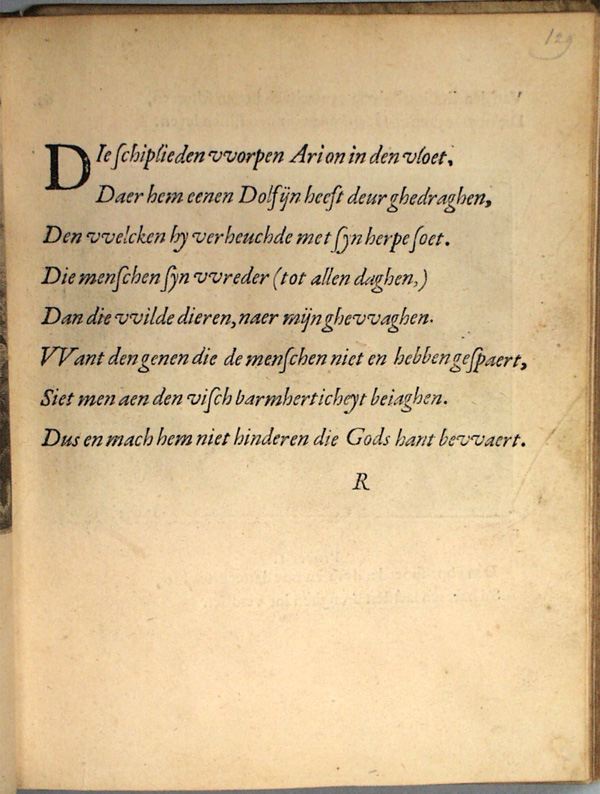 129
DIe schiplieden vvorpen Arion in den vloet,
Daer hem eenen Dolfijn heeft deur ghedraghen,
Den vvelcken hy verheuchde met syn herpe soet.
Die menschen syn vvreder (tot allen daghen,)
Dan die vvilde dieren, naer mijn ghevvaghen.
VVant dengenen die de menschen niet en hebben gespaert,
Siet men aen den visch barmherticheyt beiaghen.
Dus en mach hem niet hinderen die Gods hant bevvaert.
R